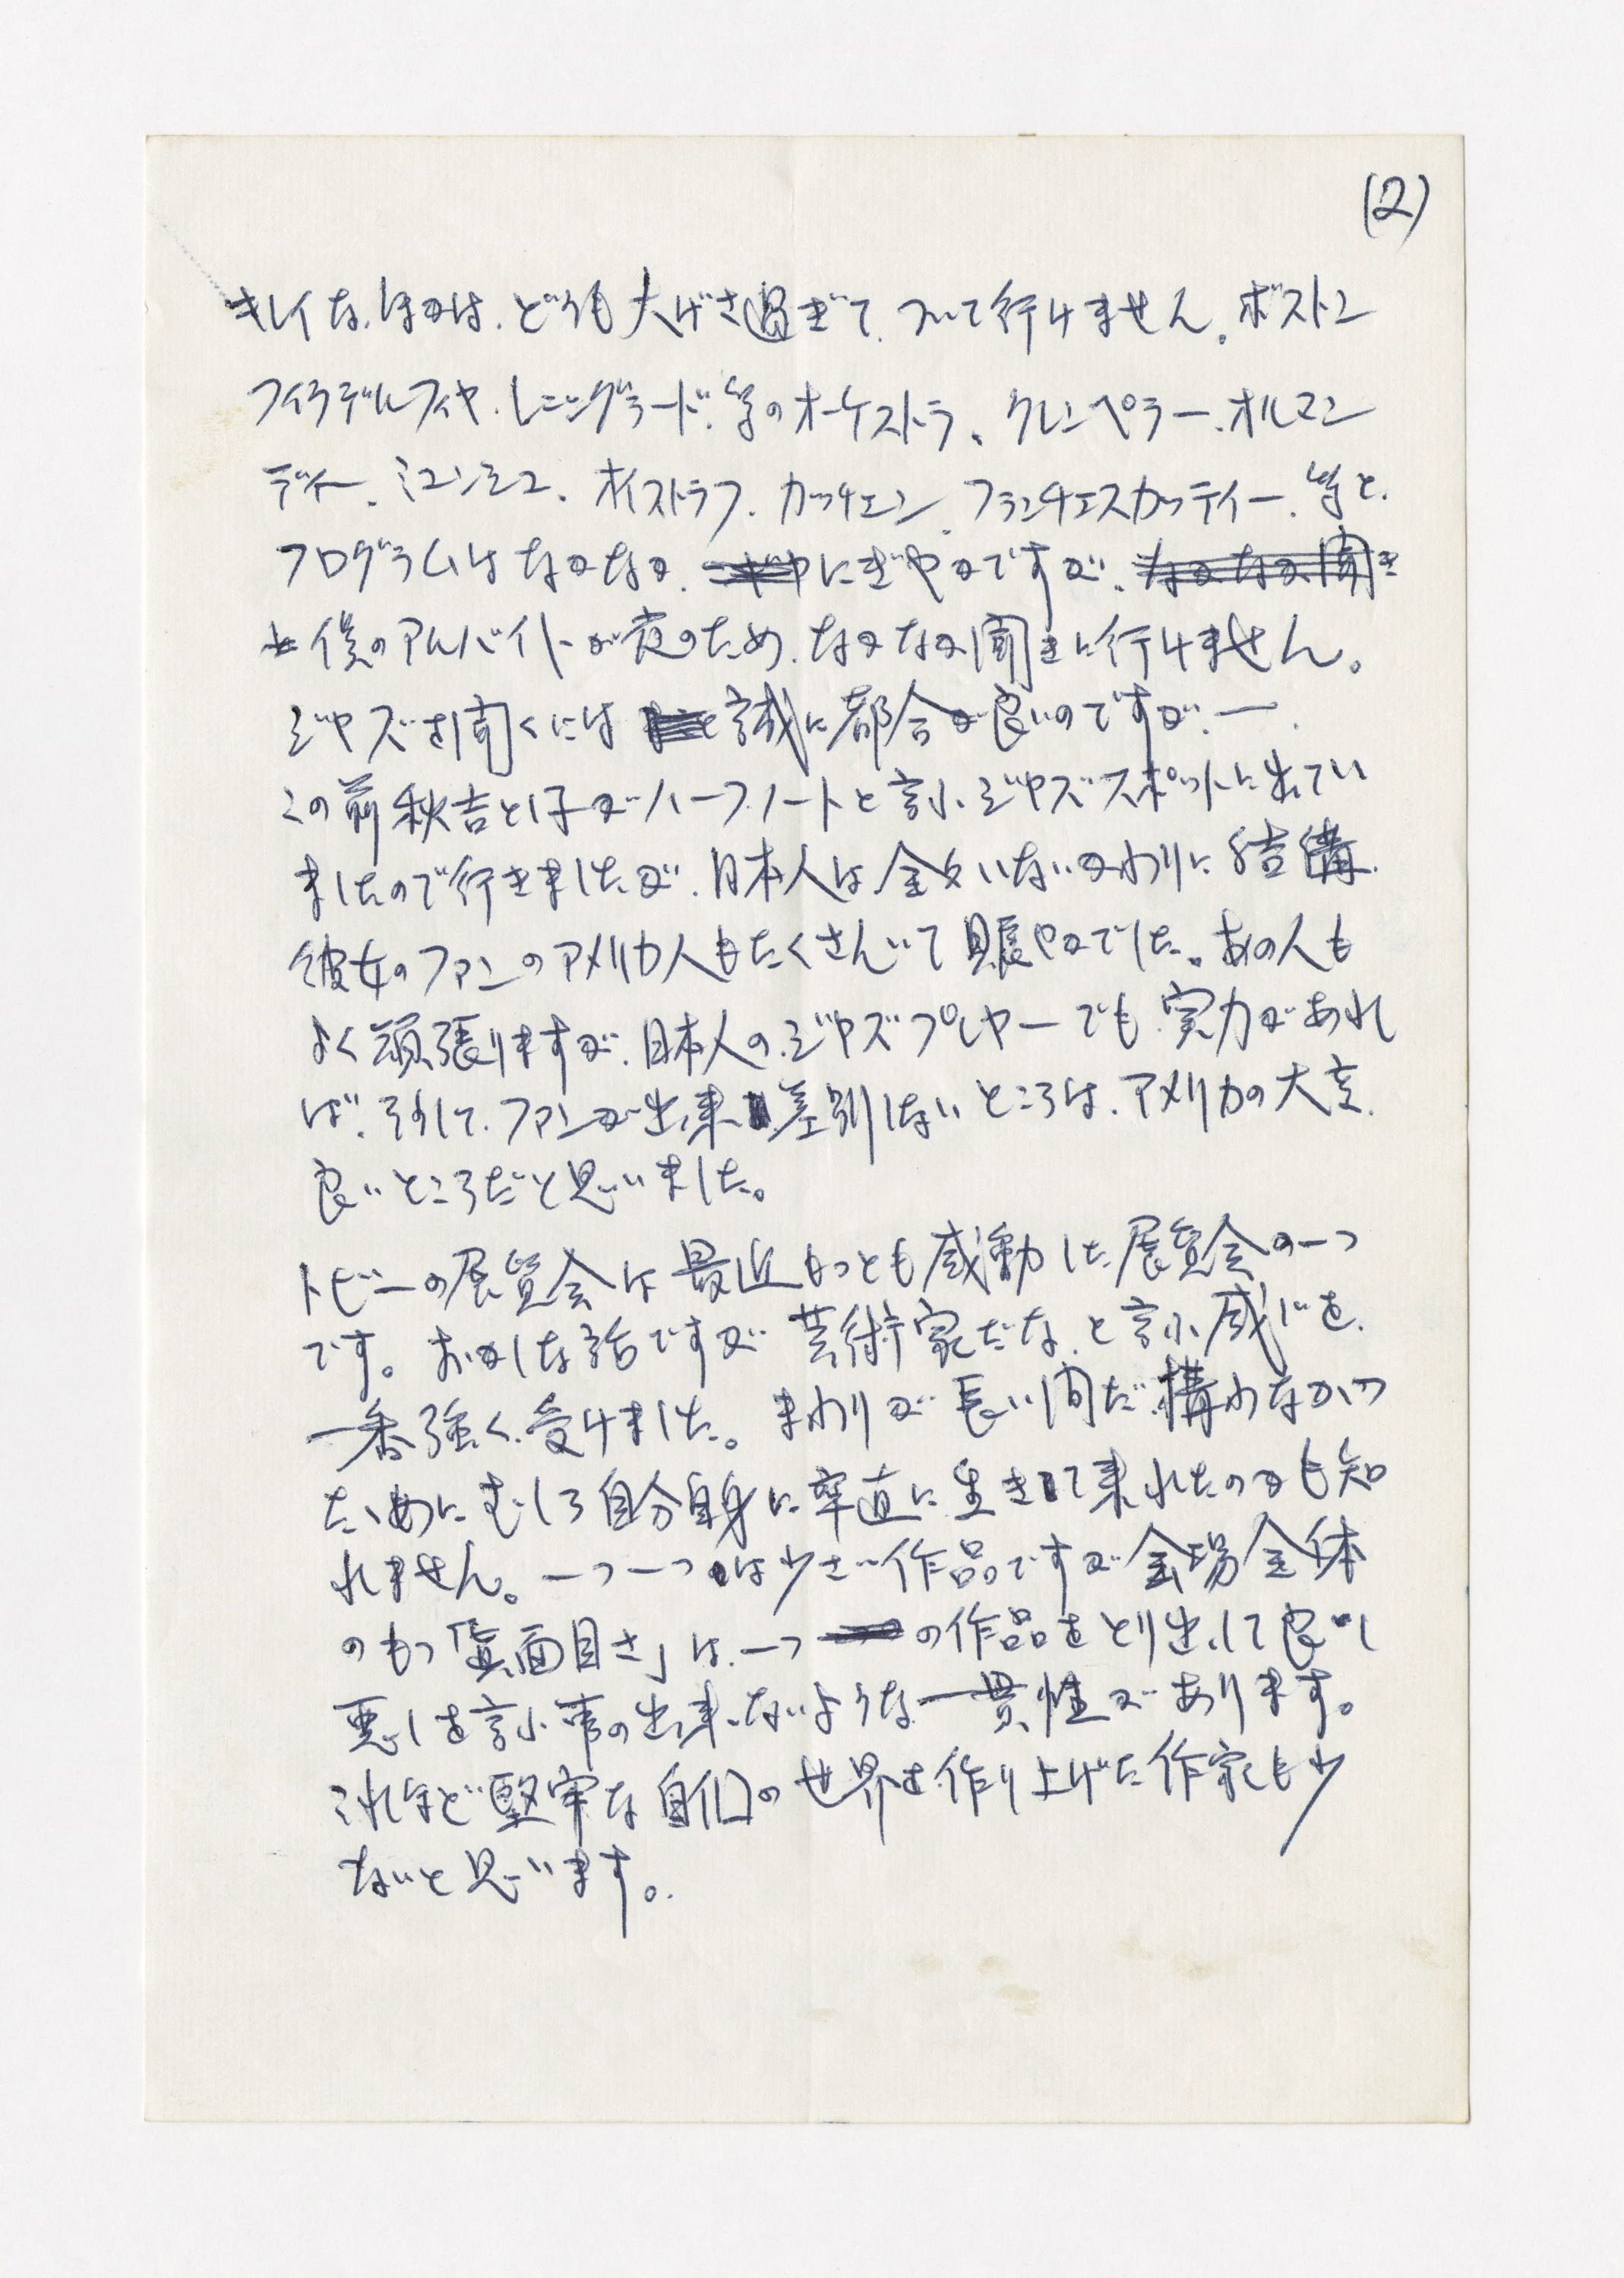 (2)
キレイな、ほかは、どうも大げさ過ぎて、ついて行けません。ボストン
フィラデルフィヤ、レニングラード、等のオーケストラ、クレンペラー、オルマン
ディー、ミュンシュ、オイストラフ、カッチェン、フランチェスカッティー、等と、
プログラムはなかなか、にぎやかですが、なかなか聞き
僕のアルバイトが夜のため、なかなか聞きに行けません。
ジヤズを聞くには 誠に都合が良いのですが、ー
この前秋吉とし子がハーフノートと言ふジヤズスポットに出てい
ましたので行きましたが、日本人は全々いないかわりに結構
彼女のファンのアメリカ人もたくさんいて賑やかでした。あの人も
よく頑張りますが、日本人のジヤズプレヤーでも実力があれ
ば、そうして、ファンが出来 差別しないところは、アメリカの大変
良いところだと思いました。
トビーの展覧会は最近もっとも感動した展覧会の一つ
です。おかしな話ですが 芸術家だな、と言ふ感じを、
一番強く受けました。まわりが長い間だ構わなかっ
たゝめにむしろ自分自身に率直に生きて来れたのかも知
れません。一つ一つは少さい作品ですが会場全体
のもつ「真面目さ」は、一つの作品をとり出して良し
悪しを言ふ事の出来ないような一貫性があります。
これほど堅牢な自们の世界を作り上げた作家も少
ないと思います。